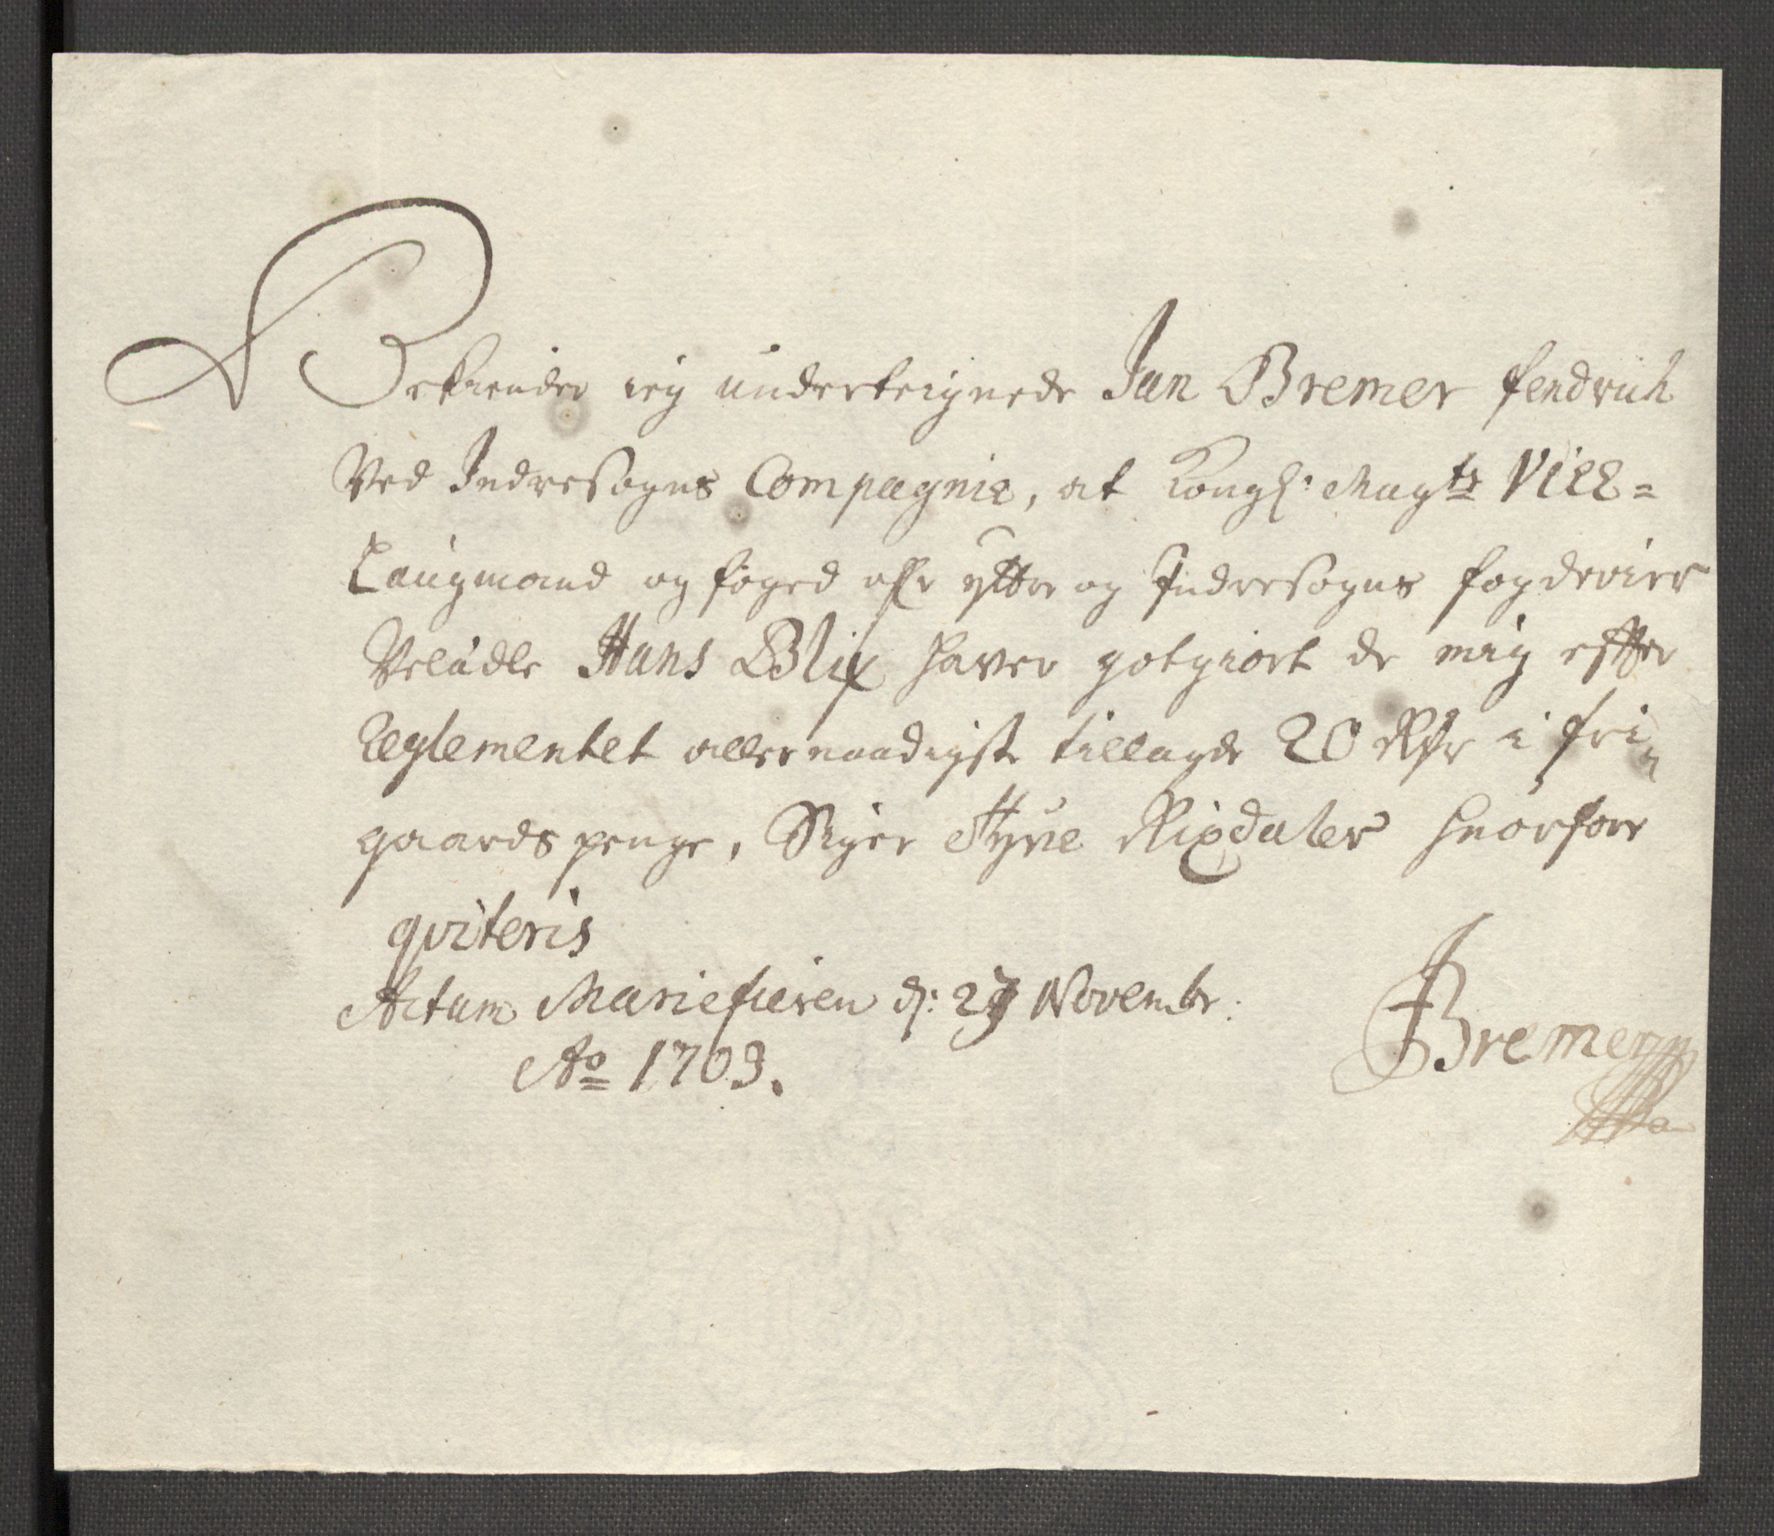 Bekiender ieg underteignede Jan Bremer fendrich
Ved Indresogns Compagnie, at Kongl: Mayts Vice=
Laugmand og foged ofr yttre og Indresogns fogderier
Velædle Hans Blix haver gotgiort de mig effter
Reglementet allernaadigste tillagde 20 Rdr i fri-
gaards penge, Siger Tyve Rixdaler hvorfore
qviteris
Actum Mariefieren d: 27 Novembr:
Ao 1709.
JBremer